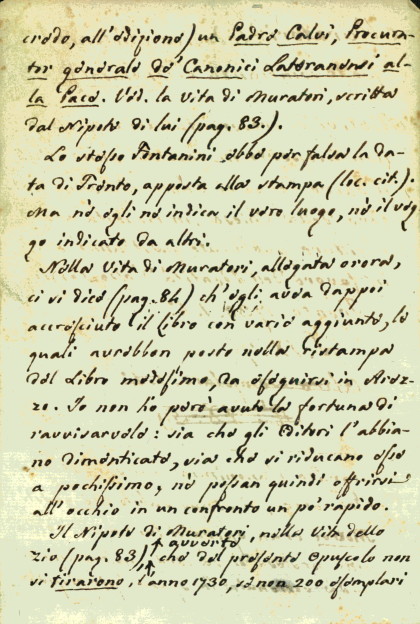 credo, all'edizione) un Padre Calvi, Procura-
tor generale de' Canonici Lateranensi al-
la Pace. Ved. la vita di Muratori, scritta
dal Nipote di lui (pag. 83.).
Lo stesso Fontanini ebbe per falsa la da-
ta di Trento, apposta alla stampa (loc. cit.).
Ma nè egli nè indica il vero luogo, nè il veg
go indicato da altri.
Nella Vita di Muratori, allegata orora,
ci si dice (pag. 84) ch'egli avea dappoi
accresciuto il libro con varie aggiunte, le
quali avrebbon posto nella ristampa
del Libro medesimo, da eseguirsi in Arez-
zo. Io non ho però avuto la fortuna di
ravvisarvele: sia che gli Editori l'abbia-
no dimenticate, sia che si riducano esse
a pochissimo, nè possan quindi offrirsi
all'occhio in un confronto un pò rapido.
Il Nipote di Muratori, nella Vita dello
zio (pag. 83), avverte che del presente Opuscolo non
si tirarono, l'anno 1730, se non 200 esemplari